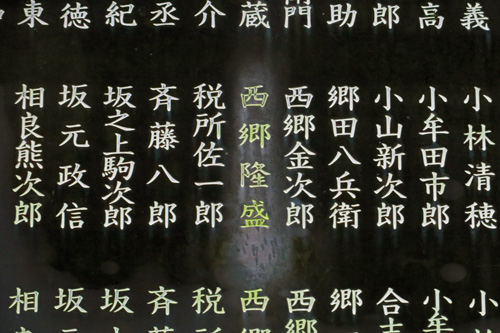 義
高
郎
助
門
蔵
介
丞
紀
徳
東
小林清穂
小牟田市郎
小山新次郎
郷田八兵衛
西郷金次郎
西郷隆盛
税所佐一郎
斉藤八郎
坂之上駒次郎
坂元政信
相良熊次郎
小
小牟
合
郷
西郷
西
税
斉
坂
坂
相